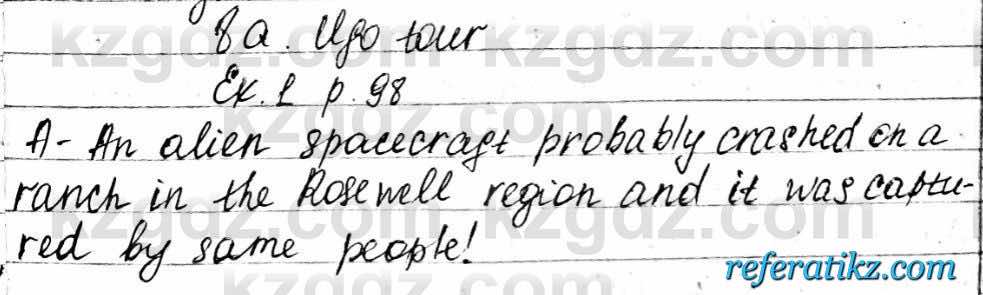 8a. Ufo tour
Ex. 1 p. 98
A- An alien spacecraft probably crashed on a
ranch in the Rosewell region and it was captu-
red by same people!
referatikz.com